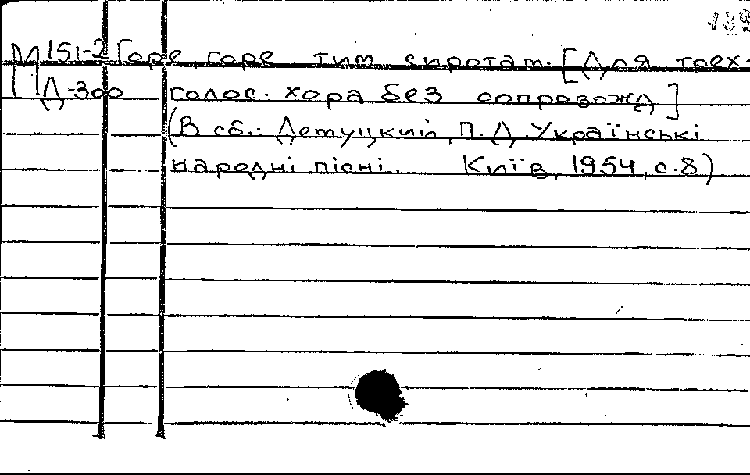 М151-2 Горе горе тим сиротам. [Для трех-
Д-300 голос. хора без сопровожд]
(В сб.: Демуцкий, П.Д. Українські
народні пісні. Київ, 1954, с.8)